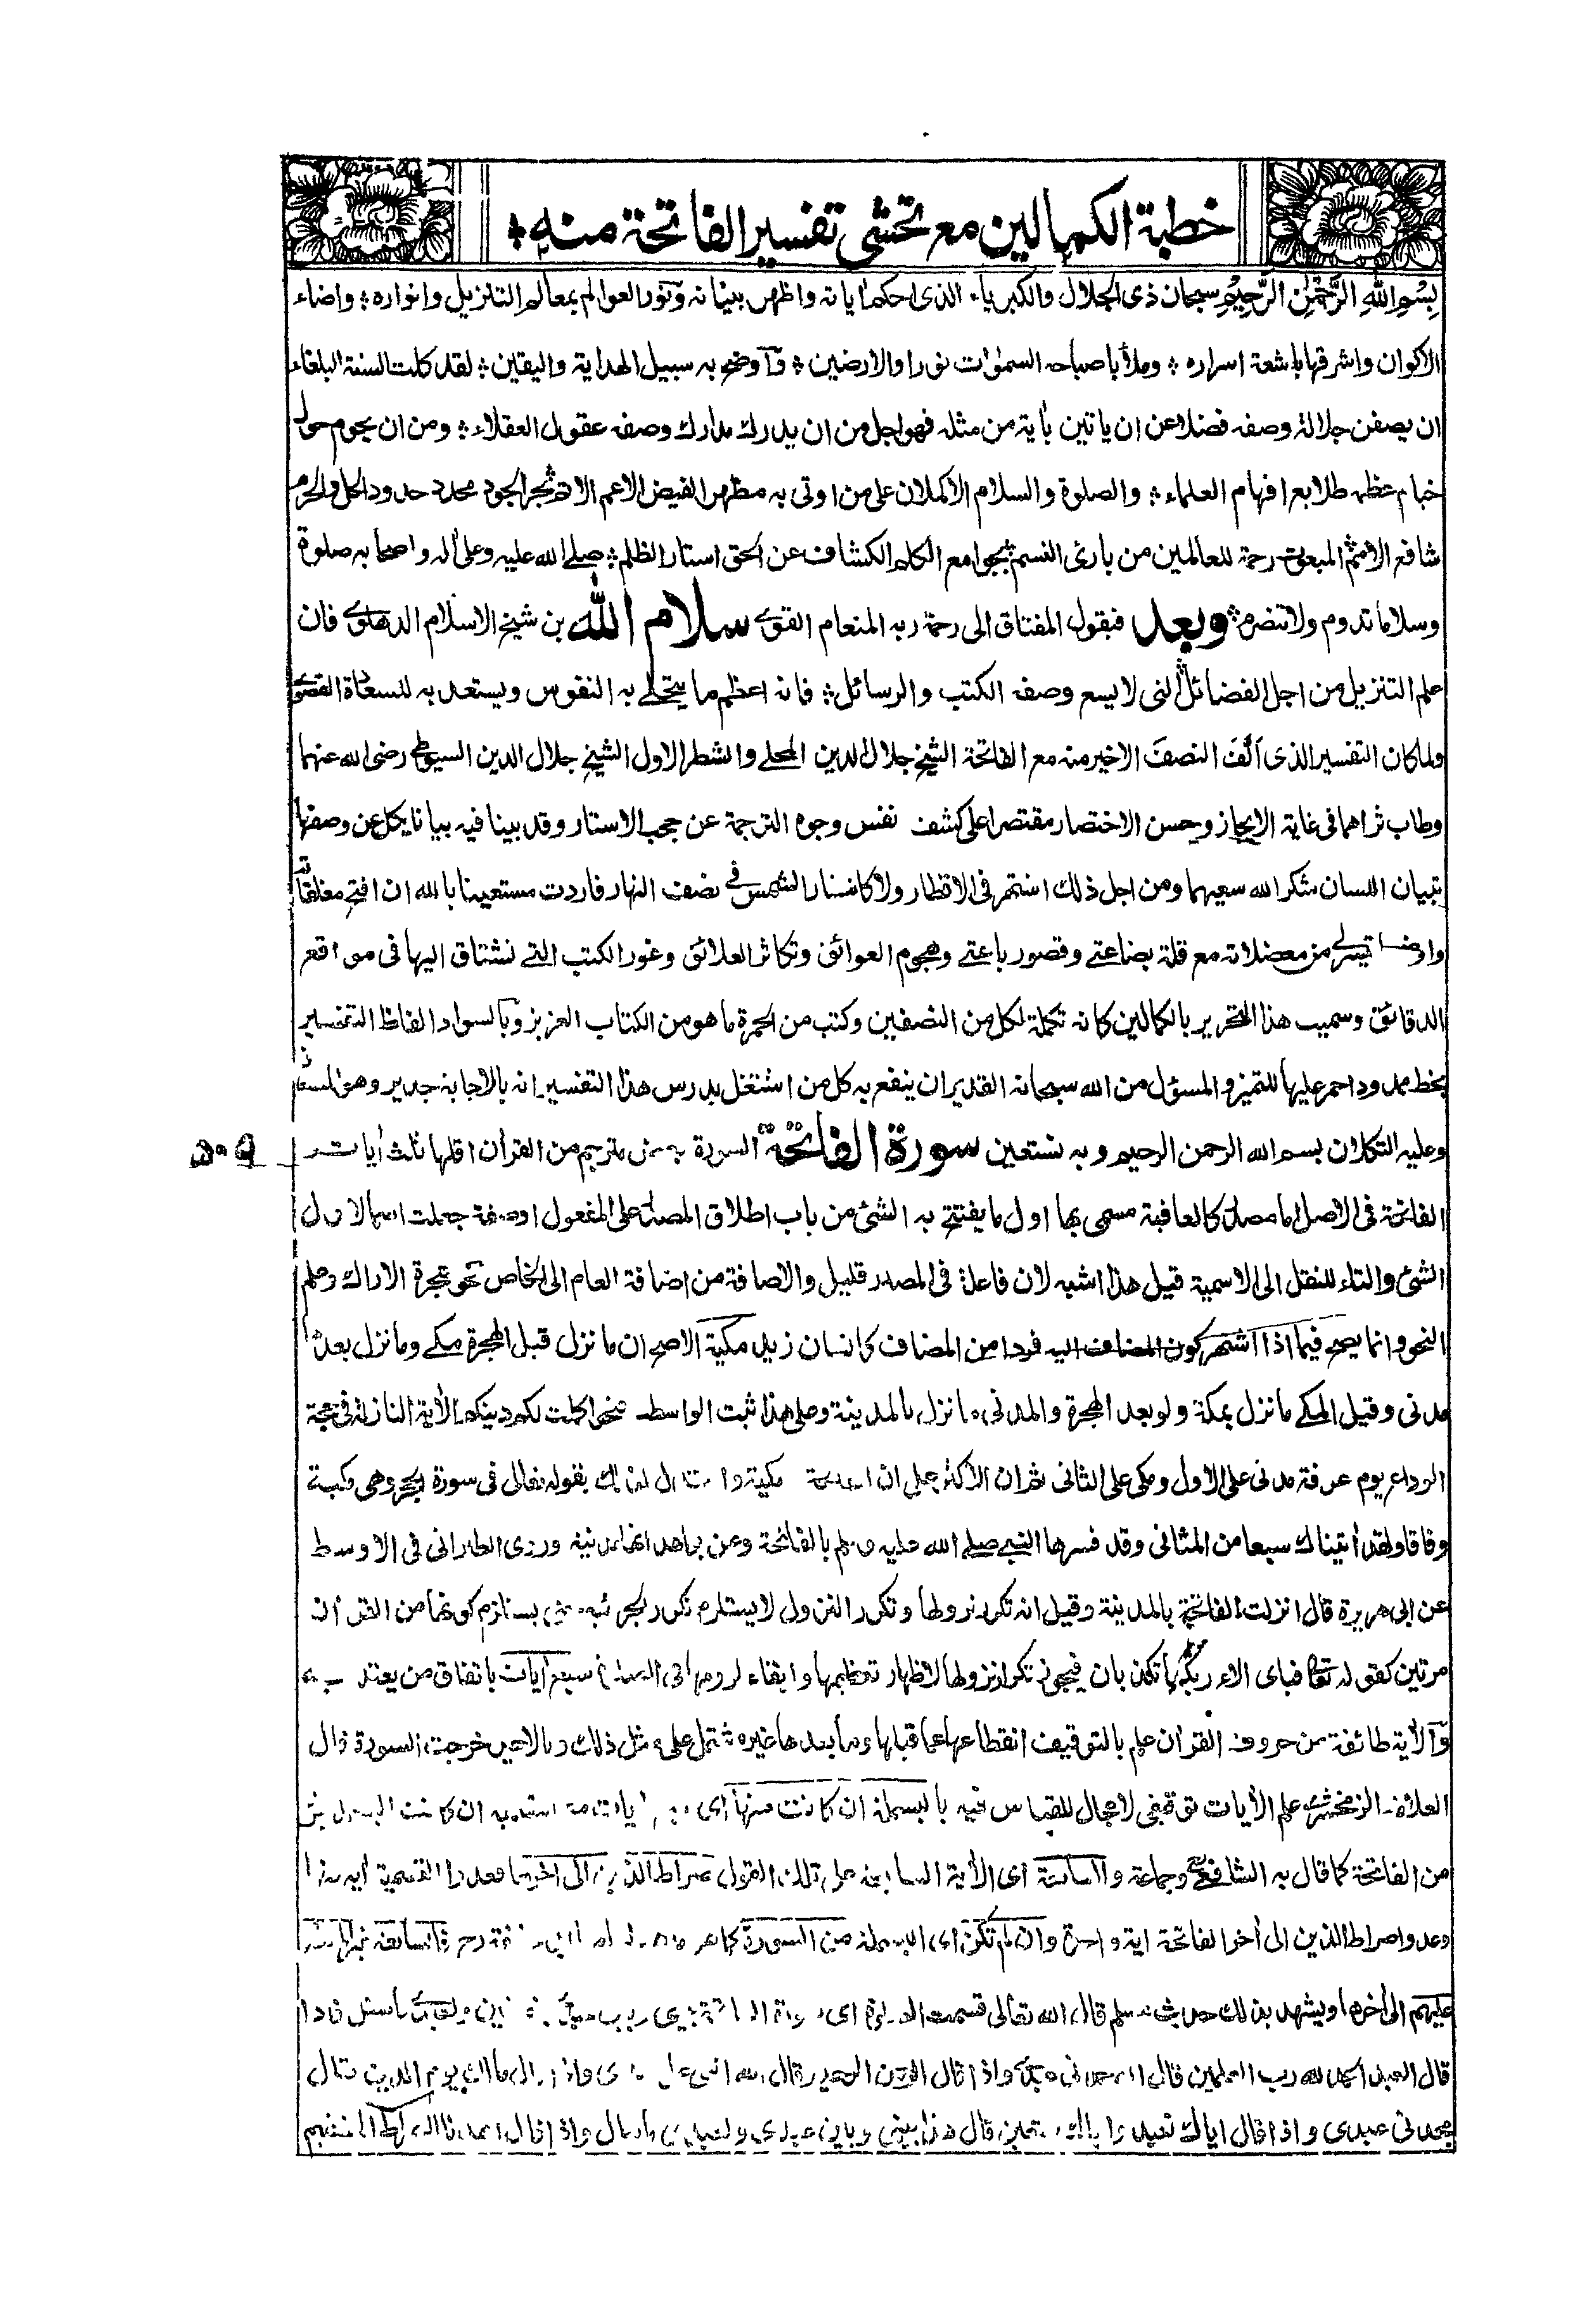 خطبة الكمالين مع تحشى تفسير الفاتحة منه
بِسْمِ اللهِ الرَّحْمٰنِ الرَّحِيْمِ سبحان ذى الجلال والكبرياء الذى احكم اٰياته واظهر بيناته ونور العوالم بمعالم التنزيل وانواره واضاء
الاكوان واشرقها باشعة اسراره وملأ باصباحه السمٰوات نورا والارضين وآوضح به سبيل الهداية واليقين لقد كلت السنة البلغاء
ان يصفن جلالة وصفه فضلا عن ان ياتين بأية من مثله فهو اجل من ان يدرك مدارك وصفه عقول العقلاء ومن ان يحوم حول
خيام عظمه طلايع افهام العلماء والصلوة والسلام الاكملان على من اوتى به مظهر الفيض الاعم الاتم بحر الجود محدد حدود الحل والحرم
شافع الامم المبعوث رحمة للعالمين من بارئ النسم بجوامع الكلم الكشاف عن الحق استار الظلم صلے الله عليه وعلى اٰله واصحابه صلوة
وسلاما تدوم ولا تنصرم وبعد فيقول المفتاق الى رحمة ربه المنعام القوے سلام الله بن شيخ الاسلام الدهلوے فان
علم التنزيل من اجل الفضائل التى لا يسع وصفه الكتب والرسائل فانه اعظم ما يتحلے به النفوس ويستعد به للسعادة القصوے
ولما كان التفسير الذى اَلَّفَ النصفَ الاخير منه مع الفاتحة الشيخ جلال الدين المحلے والشطر الاول الشيخ جلال الدين السيوطے رضى الله عنهما
وطاب ثراهما فى غاية الايجاز وحسن الاختصار مقتصرا على كشف نفس وجوه الترجمة عن حجب الاستار وقد بينا فيه بيانا يكل عن وصفها
تبيان اللسان شكر الله سعيهما ومن اجل ذلك اشتهر فى الاقطار ولا كاشتهار الشمس فے نصف النهار فاردت مستعينا بالله ان افتح مغلقاته
تيسر لے من معضلاته مع قلة بضاعتے وقصور باعتے وهجوم العوائق وتكاثر العلائق وغور الكتب التے نشتاق اليها فى مواقع
الدقائق وسميت هذا التحرير بالكمالين كانه تكملة لكل من النصفين وكتب من الحمرة ما هو من الكتاب العزيز وبالسواد الفاظ التفسير
بخط ممدود احمر عليها للتميز والمسؤل من الله سبحانه القدير ان ينفع به كل من اشتغل بدرس هذا التفسير انه بالاجابة جدير وهو المستعان
وعليه التكلان بسم الله الرحمن الرحيم وبه نستعين سورة الفاتحة السورة مترجم من القرأن اقلها ثلث اٰيات
الفاتحة فى الاصل اما مصدر كالعافية مسمى بها اول ما يفتتح به الشئ من باب اطلاق المصدر على المفعول او صفة جعلت اسما لاول
الشئ والتاء للنقل الى الاسمية قيل هذا اشبه لان فاعلة فى المصدر قليل والاضافة من اضافة العام الى الخاص نحو شجرة الاراك وعلم
النحو وانما يصح فيما اذا اشتهر كون المضاف اليه فردا من المضاف كانسان زيد مكية الاصح ان ما نزل قبل الهجرة مكے وما نزل بعدها
مدنى وقيل المكے ما نزل بمكة ولو بعد الهجرة والمدنى ما نزل بالمدينة وعلى هذا ثبت الواسطة اكملت لكم دينكم الأية النازلة فى حجة
الوداع يوم عرفة مدنى على الاول ومكى على الثانى ثم ان الاكثر على ان مكية بقوله تعالى فى سورة الحجر وهى مكية
وفاقا ولقد اٰتيناك سبعا من المثانى وقد فسرها النبے صلے الله عليه وسلم بالفاتحة وعن مجاهد انها مدنية وروى الطبرانى فى الاوسط
عن ابى هريرة قال انزلت الفاتحة بالمدينة وقيل انه تكرر نزولها وتكرر النزول لا يستلزم يستلزم كونها من القرأن
مرتين كقوله تعالى فباى الاء ربكما تكذبان فيجوز تكرار نزولها لاظهار تعظيمها سبع اٰيات باتفاق من يعتد به
وآلأية طائفة من حروف القرأن علم بالتوقيف انقطاعها عما قبلها وما بعدها غيره مشتمل على مثل ذلك خرجت السورة قال
العلامة الزمخشرے علم الأيات توقيفى لا مجال للقياس فيه بالبسملة ان كانت منها اى
من الفاتحة كما قال به الشافعے وجماعة والسابعة اى الأية السابعة على تلك القول صراط الذين الى اخرها
وعدوا صراط الذين الى أخر الفاتحة اية واحدة وان لم تكن اى البسملة من السورة فالسابعة
عليهم الى أخرها ويشهد بذلك حديث مسلم قال الله تعالى قسمت
قال العبد الحمد لله رب العلمين قال الله حمدنى واذا قال الرحمن الرحيم قال الله مالك يوم الدين قال
مجدنى عبدى واذا قال اياك نعبد قال هذا بينى وبين عبدى ولعبدى واذا قال